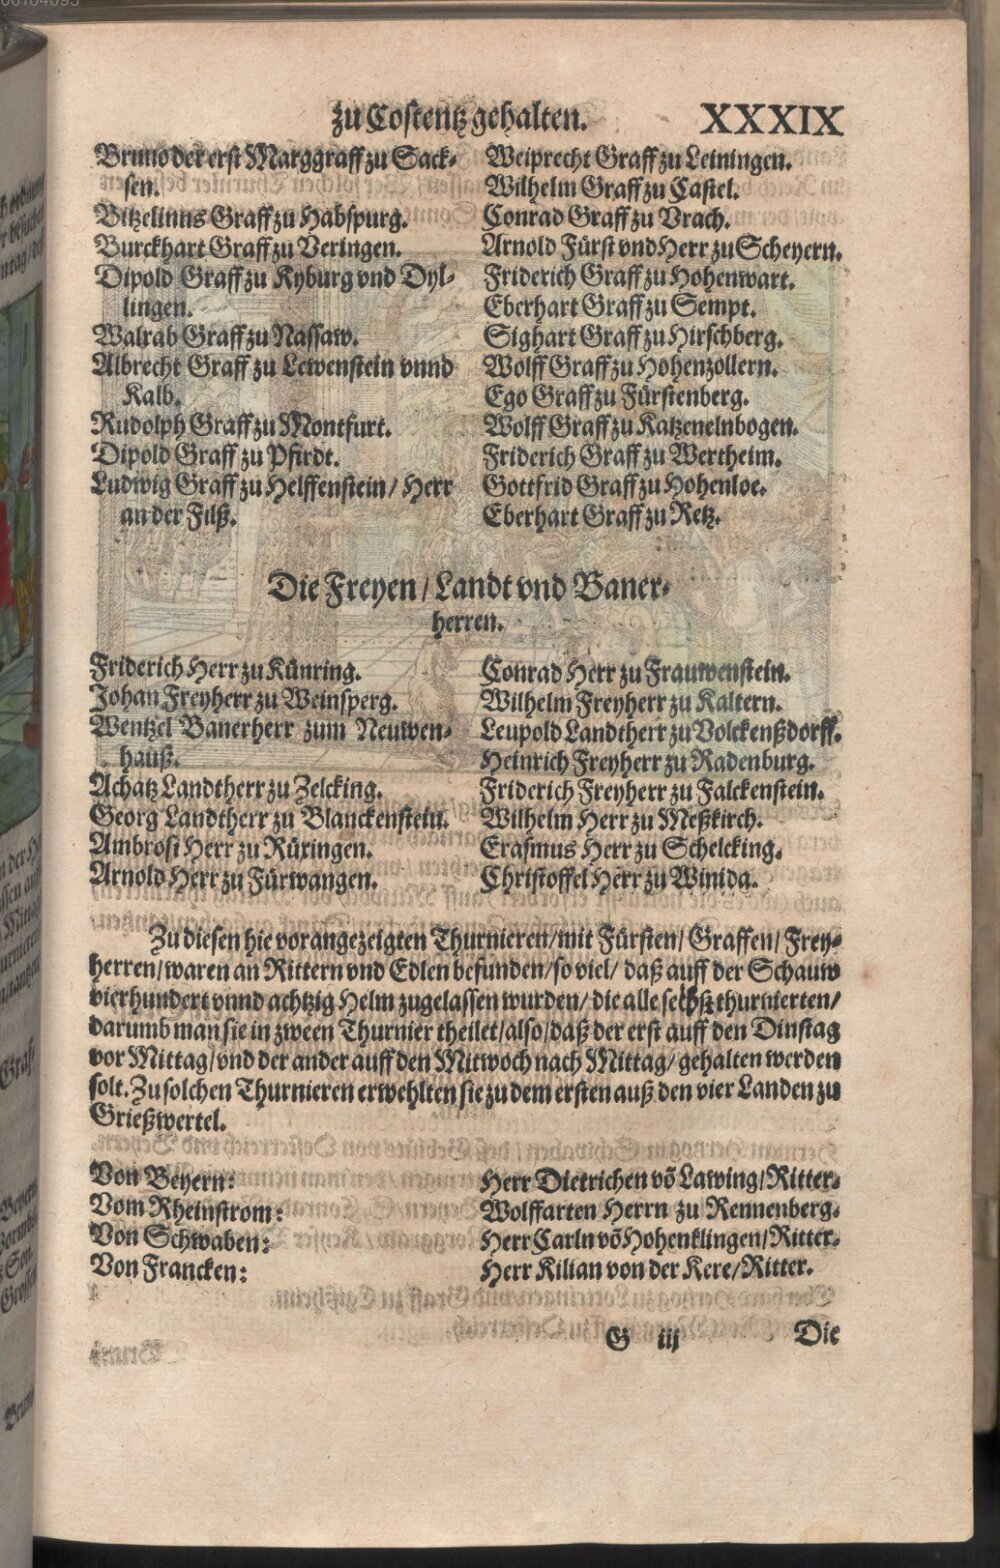 zu Costentz gehalten. XXXIX
Bruno der erst Marggraff zu Sack-
sen.
Bitzelinus Graff zu Habspurg.
Burckhart Graff zu Veringen.
Dipold Graff zu Kyburg vnd Dyl-
lingen.
Walrab Graff zu Nassaw.
Albrecht Graff zu Lewenstein vnnd
Kalb.
Rudolph Graff zu Montfurt.
Dipold Graff zu Pfirdt.
Ludwig Graff zu Helffenstein/ Herr
an der Filß.
Weiprecht Graff zu Leiningen.
Wilhelm Graff zu Castel.
Conrad Graff zu Vrach.
Arnold Fürst vnd Herr zu Scheyern.
Friderich Graff zu Hohenwart.
Eberhart Graff zu Sempt.
Sighart Graff zu Hirschberg.
Wolff Graff zu Hohenzollern.
Ego Graff zu Fürstenberg.
Wolff Graff zu Katzenelnbogen.
Friderich Graff zu Wertheim.
Gottfrid Graff zu Hohenloe.
Eberhart Graff zu Retz.
Die Freyen/ Landt vnd Baner-
herren.
Friderich Herr zu Künring.
Johan Freyherr zu Weinsperg.
Wentzel Banerherr zum Neuwen-
hauß.
Achatz Landtherr zu Zelcking.
Georg Landtherr zu Blanckenstein.
Ambrosi Herr zu Rüxingen.
Arnold Herr zu Fürwangen.
Conrad Herr zu Frauwenstein.
Wilhelm Freyherr zu Kaltern.
Leupold Landtherr zu Volckenßdorff.
Heinrich Freyherr zu Radenburg.
Friderich Freyherr zu Falckenstein.
Wilhelm Herr zu Meßkirch.
Erasmus Herr zu Schelcking.
Christoffel Herr zu Winida.
Zu diesen hie vorangezeigten Thurnieren/ mit Fürsten/ Graffen/ Frey-
herren/ waren an Rittern vnd Edlen befunden/ so viel/ daß auff der Schauw
vierhundert vnnd achtzig Helm zugelassen wurden/ die alle selbst thurnierten/
darumb man sie in zween Thurnier theilet/ also/ daß der erst auff den Dinstag
vor Mittag/ vnd der ander auff den Mitwoch nach Mittag/ gehalten werden
solt. Zu solchen Thurnieren erwehlten sie zu dem ersten auß den vier Landen zu
Grießwertel.
Von Beyern: Herr Dietrichen võ Lawing/ Ritter.
Vom Rheinstrom: Wolffarten Herrn zu Rennenberg.
Von Schwaben: Herr Carln võ Hohenklingen/ Ritter.
Von Francken: Herr Kilian von der Kere/ Ritter.
G iij Die